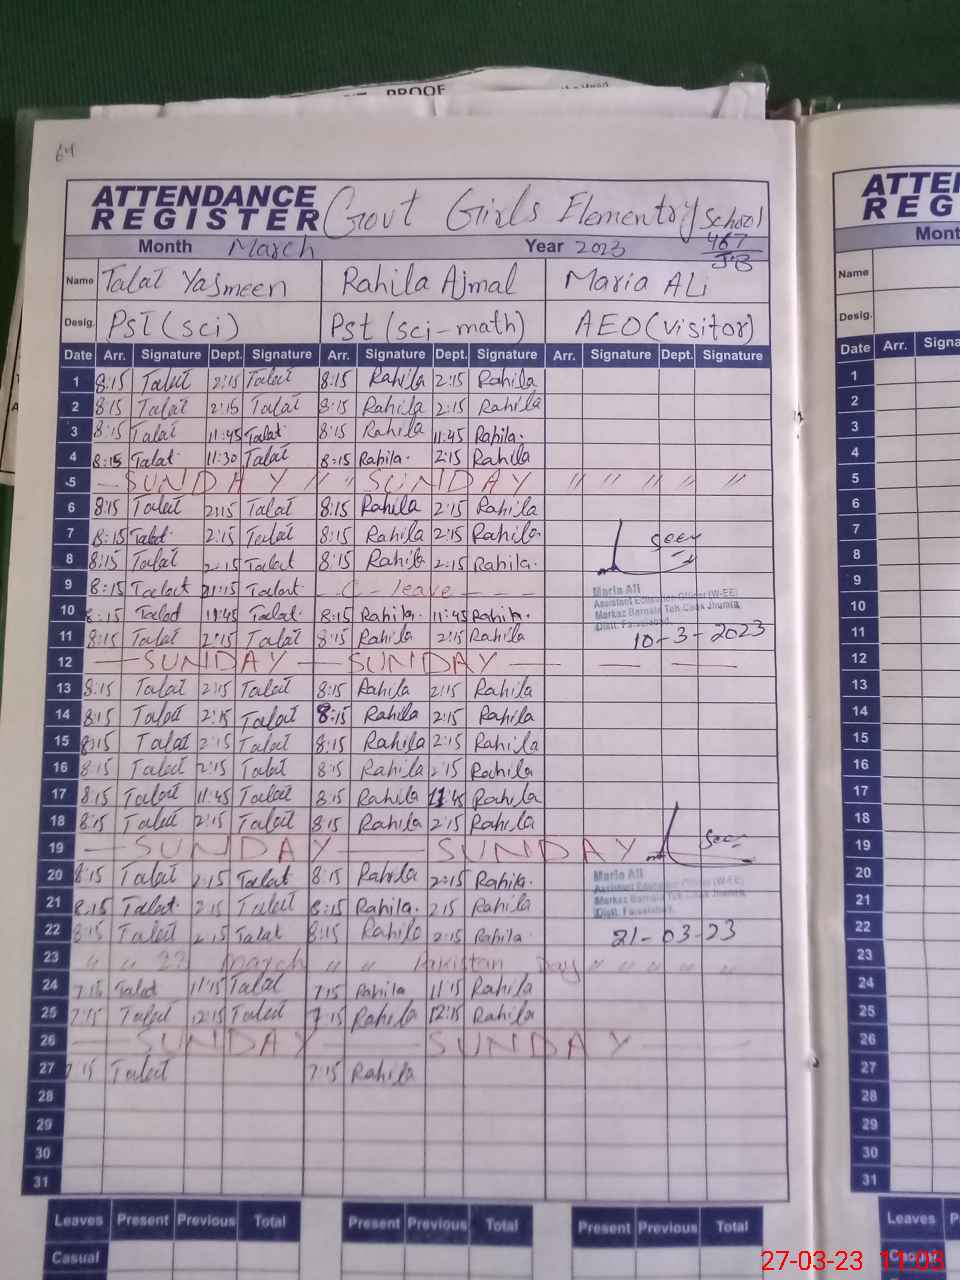 PROOF
64
ATTENDANCE REGISTER Govt Girls Elementry School 467 JB
Month March Year 2023
Name Talat Yasmeen Rahila Ajmal Maria ALi
Desig. PST (sci) Pst (sci-math) AEO (visitor)
Date Arr. Signature Dept. Signature Arr. Signature Dept. Signature Arr. Signature Dept. Signature
1 8:15 Talat 2:15 Talat 8:15 Rahila 2:15 Rahila
2 8:15 Talat 2:15 Talat 8:15 Rahila 2:15 Rahila
3 8:15 Talat 11:45 Talat 8:15 Rahila 11:45 Rahila.
4 8:15 Talat 11:30 Talat 8:15 Rahila. 2:15 Rahila
5 — SUNDAY " " SUNDAY " " " " "
6 8:15 Talat 2:15 Talat 8:15 Rahila 2:15 Rahila
7 8:15 Talat 2:15 Talat 8:15 Rahila 2:15 Rahila. seen
8 8:15 Talat 2:15 Talat 8:15 Rahila 2:15 Rahila.
9 8:15 Talat 2:15 Talat — C-leave — — —
Maria Ali
Assistant Education Officer (W-EE)
Markaz Barnala Teh Chak Jhumra
Distt. Faisalabad
10 8:15 Talat 11:45 Talat. 8:15 Rahila. 11:45 Rahila.
11 8:15 Talat 2:15 Talat 8:15 Rahila 2:15 Rahila 10-3-2023
12 — SUNDAY — SUNDAY — — —
13 8:15 Talat 2:15 Talat 8:15 Rahila 2:15 Rahila
14 8:15 Talat 2:15 Talat 8:15 Rahila 2:15 Rahila
15 8:15 Talat 2:15 Talat 8:15 Rahila 2:15 Rahila
16 8:15 Talat 2:15 Talat 8:15 Rahila 2:15 Rahila
17 8:15 Talat 11:45 Talat 8:15 Rahila 11:45 Rahila
18 8:15 Talat 2:15 Talat 8:15 Rahila 2:15 Rahila
19 — SUNDAY — SUNDAY seen
20 8:15 Talat 2:15 Talat 8:15 Rahila 2:15 Rahila.
Maria Ali
Assistant Education Officer (W-EE)
Markaz Barnala Teh Chak Jhumra
Distt. Faisalabad
21 8:15 Talat. 2:15 Talat 8:15 Rahila. 2:15 Rahila
22 8:15 Talat 2:15 Talat 8:15 Rahila 2:15 Rahila 21-03-23
23 " " 23 March " " Pakistan Day " " " " "
24 7:15 Talat 11:15 Talat 7:15 Rahila 11:15 Rahila
25 7:15 Talat 12:15 Talat 7:15 Rahila 12:15 Rahila
26 — SUNDAY — SUNDAY —
27 7:15 Talat 7:15 Rahila
28
29
30
31
Leaves Present Previous Total Present Previous Total Present Previous Total
Casual
ATTEN
REG
Mont
Name
Desig.
Date Arr. Signa
1
2
3
4
5
6
7
8
9
10
11
12
13
14
15
16
17
18
19
20
21
22
23
24
25
26
27
28
29
30
31
Leaves P
Casual
27-03-23 11:03